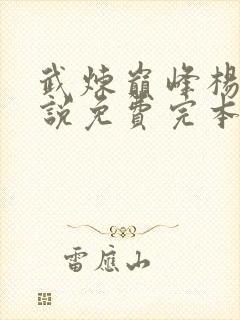 武煉巔峰楊
說免費完本
雷應山